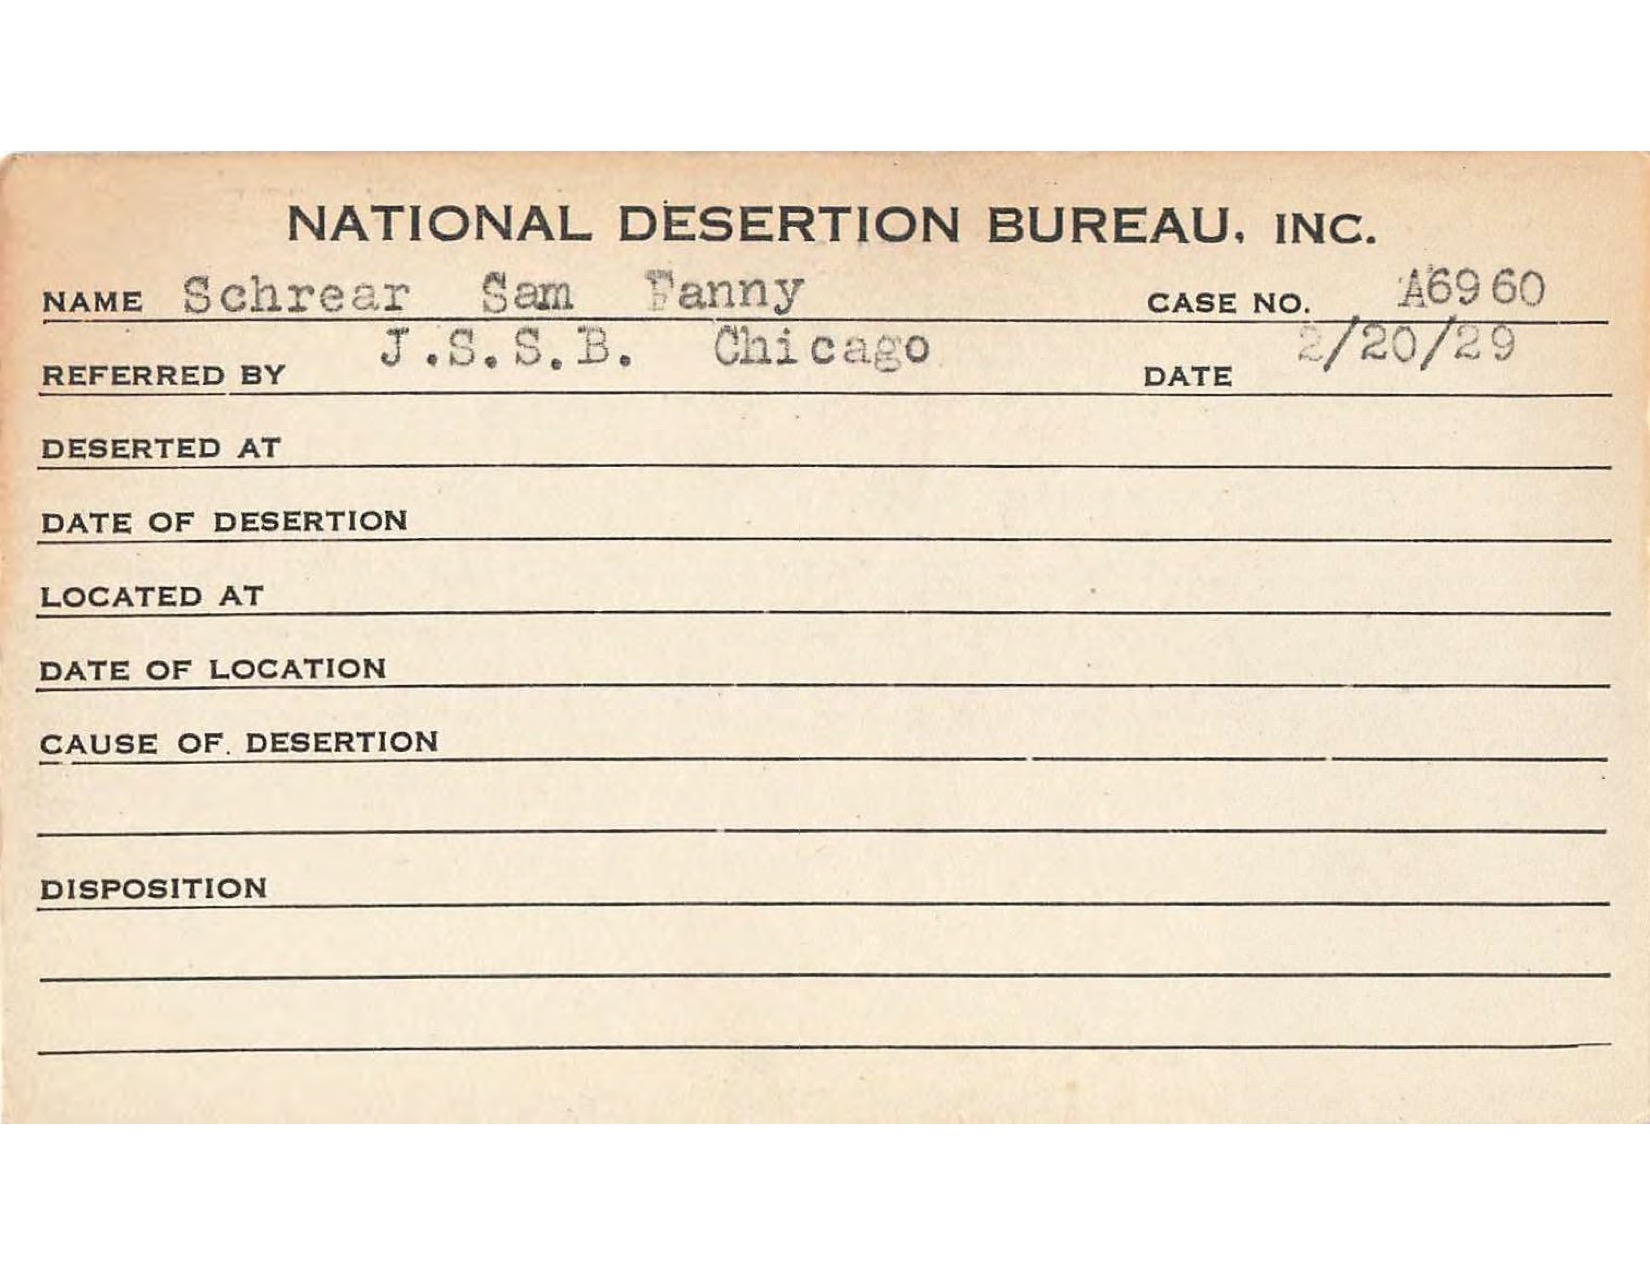 NATIONAL DESERTION BUREAU, INC.
NAME Schrear Sam Fanny CASE NO. A6960
REFERRED BY J.S.S.B. Chicago DATE 2/20/29
DESERTED AT
DATE OF DESERTION
LOCATED AT
DATE OF LOCATION
CAUSE OF DESERTION
DISPOSITION